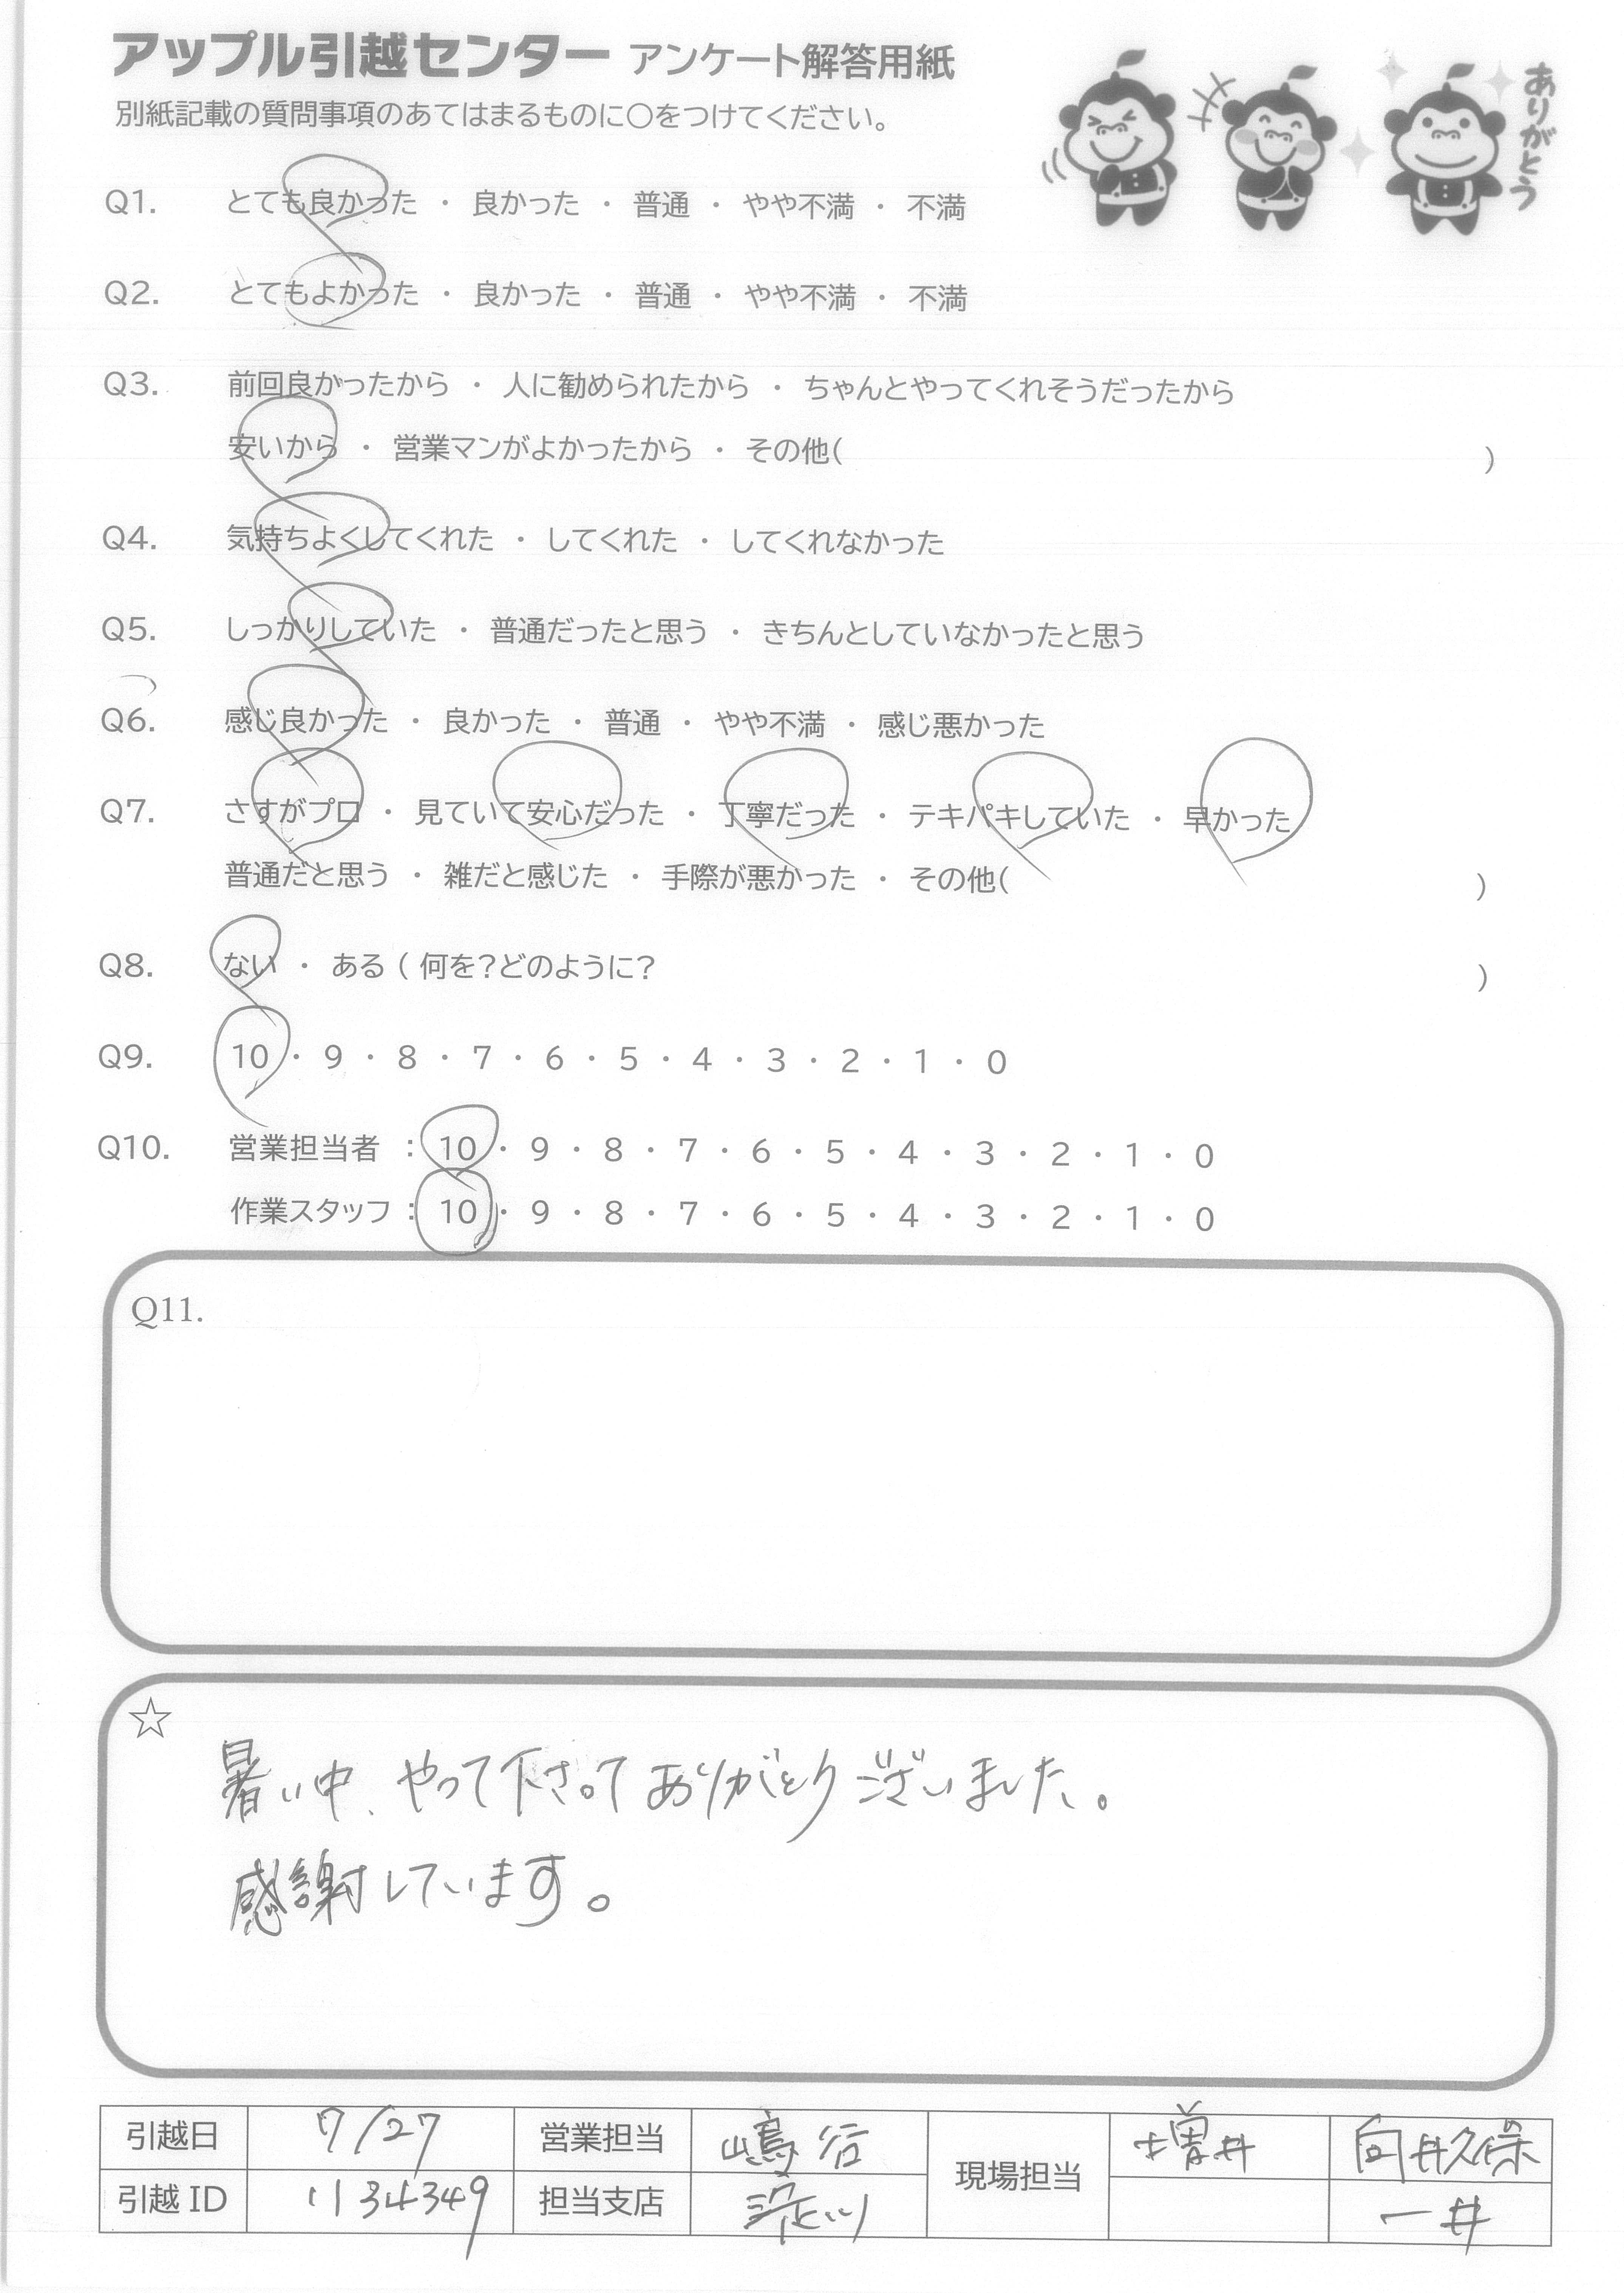 アップル引越センター アンケート解答用紙
別紙記載の質問事項のあてはまるものに〇をつけてください。
ありがとう
Q1. とても良かった ・ 良かった ・ 普通 ・ やや不満 ・ 不満
Q2. とてもよかった ・ 良かった ・ 普通 ・ やや不満 ・ 不満
Q3. 前回良かったから ・ 人に勧められたから ・ ちゃんとやってくれそうだったから
安いから ・ 営業マンがよかったから ・ その他( )
Q4. 気持ちよくしてくれた ・ してくれた ・ してくれなかった
Q5. しっかりしていた ・ 普通だったと思う ・ きちんとしていなかったと思う
Q6. 感じ良かった ・ 良かった ・ 普通 ・ やや不満 ・ 感じ悪かった
Q7. さすがプロ ・ 見ていて安心だった ・ 丁寧だった ・ テキパキしていた ・ 早かった
普通だと思う ・ 雑だと感じた ・ 手際が悪かった ・ その他( )
Q8. ない ・ ある ( 何を?どのように? )
Q9. 10 ・ 9 ・ 8 ・ 7 ・ 6 ・ 5 ・ 4 ・ 3 ・ 2 ・ 1 ・ 0
Q10. 営業担当者 : 10 ・ 9 ・ 8 ・ 7 ・ 6 ・ 5 ・ 4 ・ 3 ・ 2 ・ 1 ・ 0
作業スタッフ : 10 ・ 9 ・ 8 ・ 7 ・ 6 ・ 5 ・ 4 ・ 3 ・ 2 ・ 1 ・ 0
Q11.
☆
暑い中、やって下さってありがとうございました。
感謝しています。
引越日 7/27 営業担当 嶋谷 現場担当 増井 向井久保
引越 ID 1134349 担当支店 淀川 一井